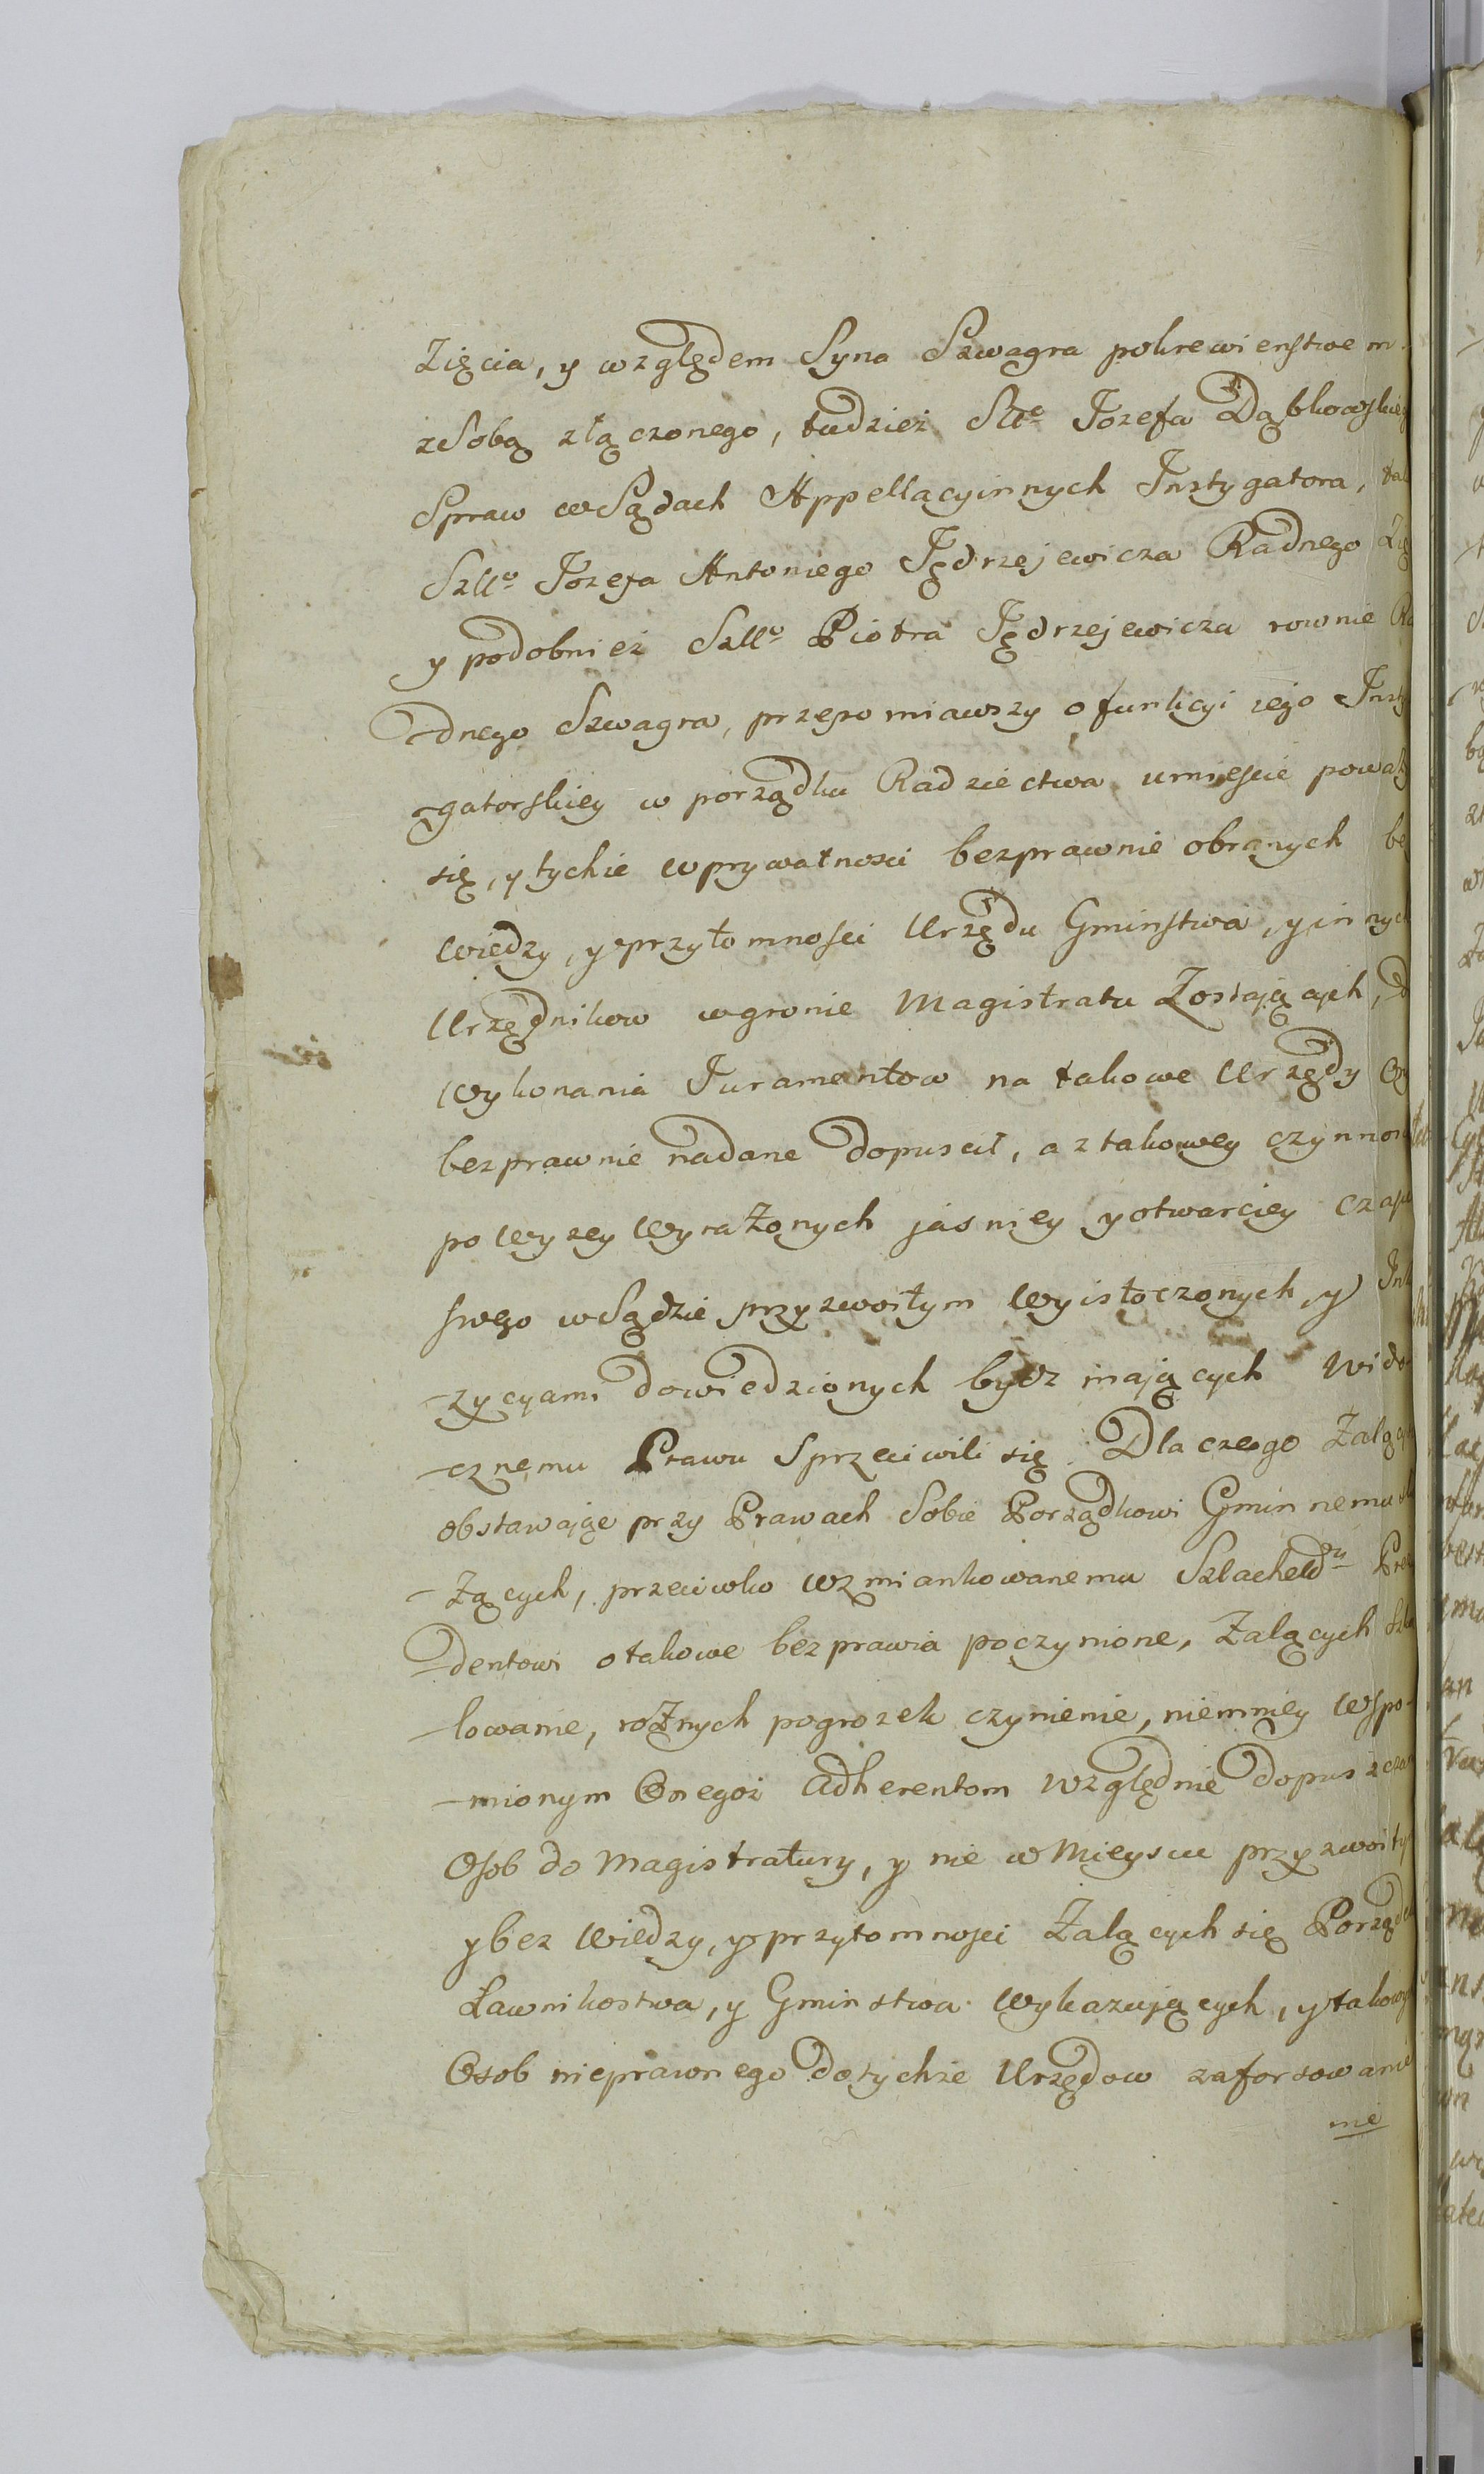 Zięcia, y względem Syna Szwagra pokrewienstwem
z Sobą złączonego, tudzież Szlo Jozefa Dąbkowskieg
Spraw w Sądach Appellacyinnych Instygatora,
Szllo Jozefa Antoniego Jędrzejewicza Radnego
y podobnież Szllo Piotra Jędrzejewicza rownie
dnego Szwagra, przepomiawszy o funkcyi iego Insty
-gatorskiey w porządku Radziectwa umieście powaz
się, y tychże w prywatnosci bezprawnie obranych
Wiedzy, y przytomnosci Urzędu Gminstwa, y innych
Urzędnikow w gronie Magistratu Zostaiących,
Wykonania Juramentow na takowe Urzędy
bezprawnie nadane dopuscił, a z takowey czynnos
powyzey Wyrażonych jasniey y otwarciey czasu
swego w Sądzie przyzwoitym Wyistoczonych, y
-zycyami dowiedzionych bydz mających Wido
-cznemu Prawu Sprzeciwili się. Dla czego Zalący
obstawając przy Prawach Sobie Porządkowi Gminnemu
-żących, przeciwko Wzmiankowanemu Szlachetdu
-dentowi o takowe bezprawia poczynione, Zalących
-lowanie, rożnych pogrozek czynienie, niemniey Wspo-
-mionym Onegoz Adherentom Względnie dopuszczen
Osob do Magistratury, y nie w Mieyscu przyzwoity
y bez Wiedzy, y przytomnosci Zalących się Porządku
Ławnikostwa, y Gminstwa Wykazujących, y takowych
Osob nieprawnego do tychże Urzędow zaforsowanie
nie